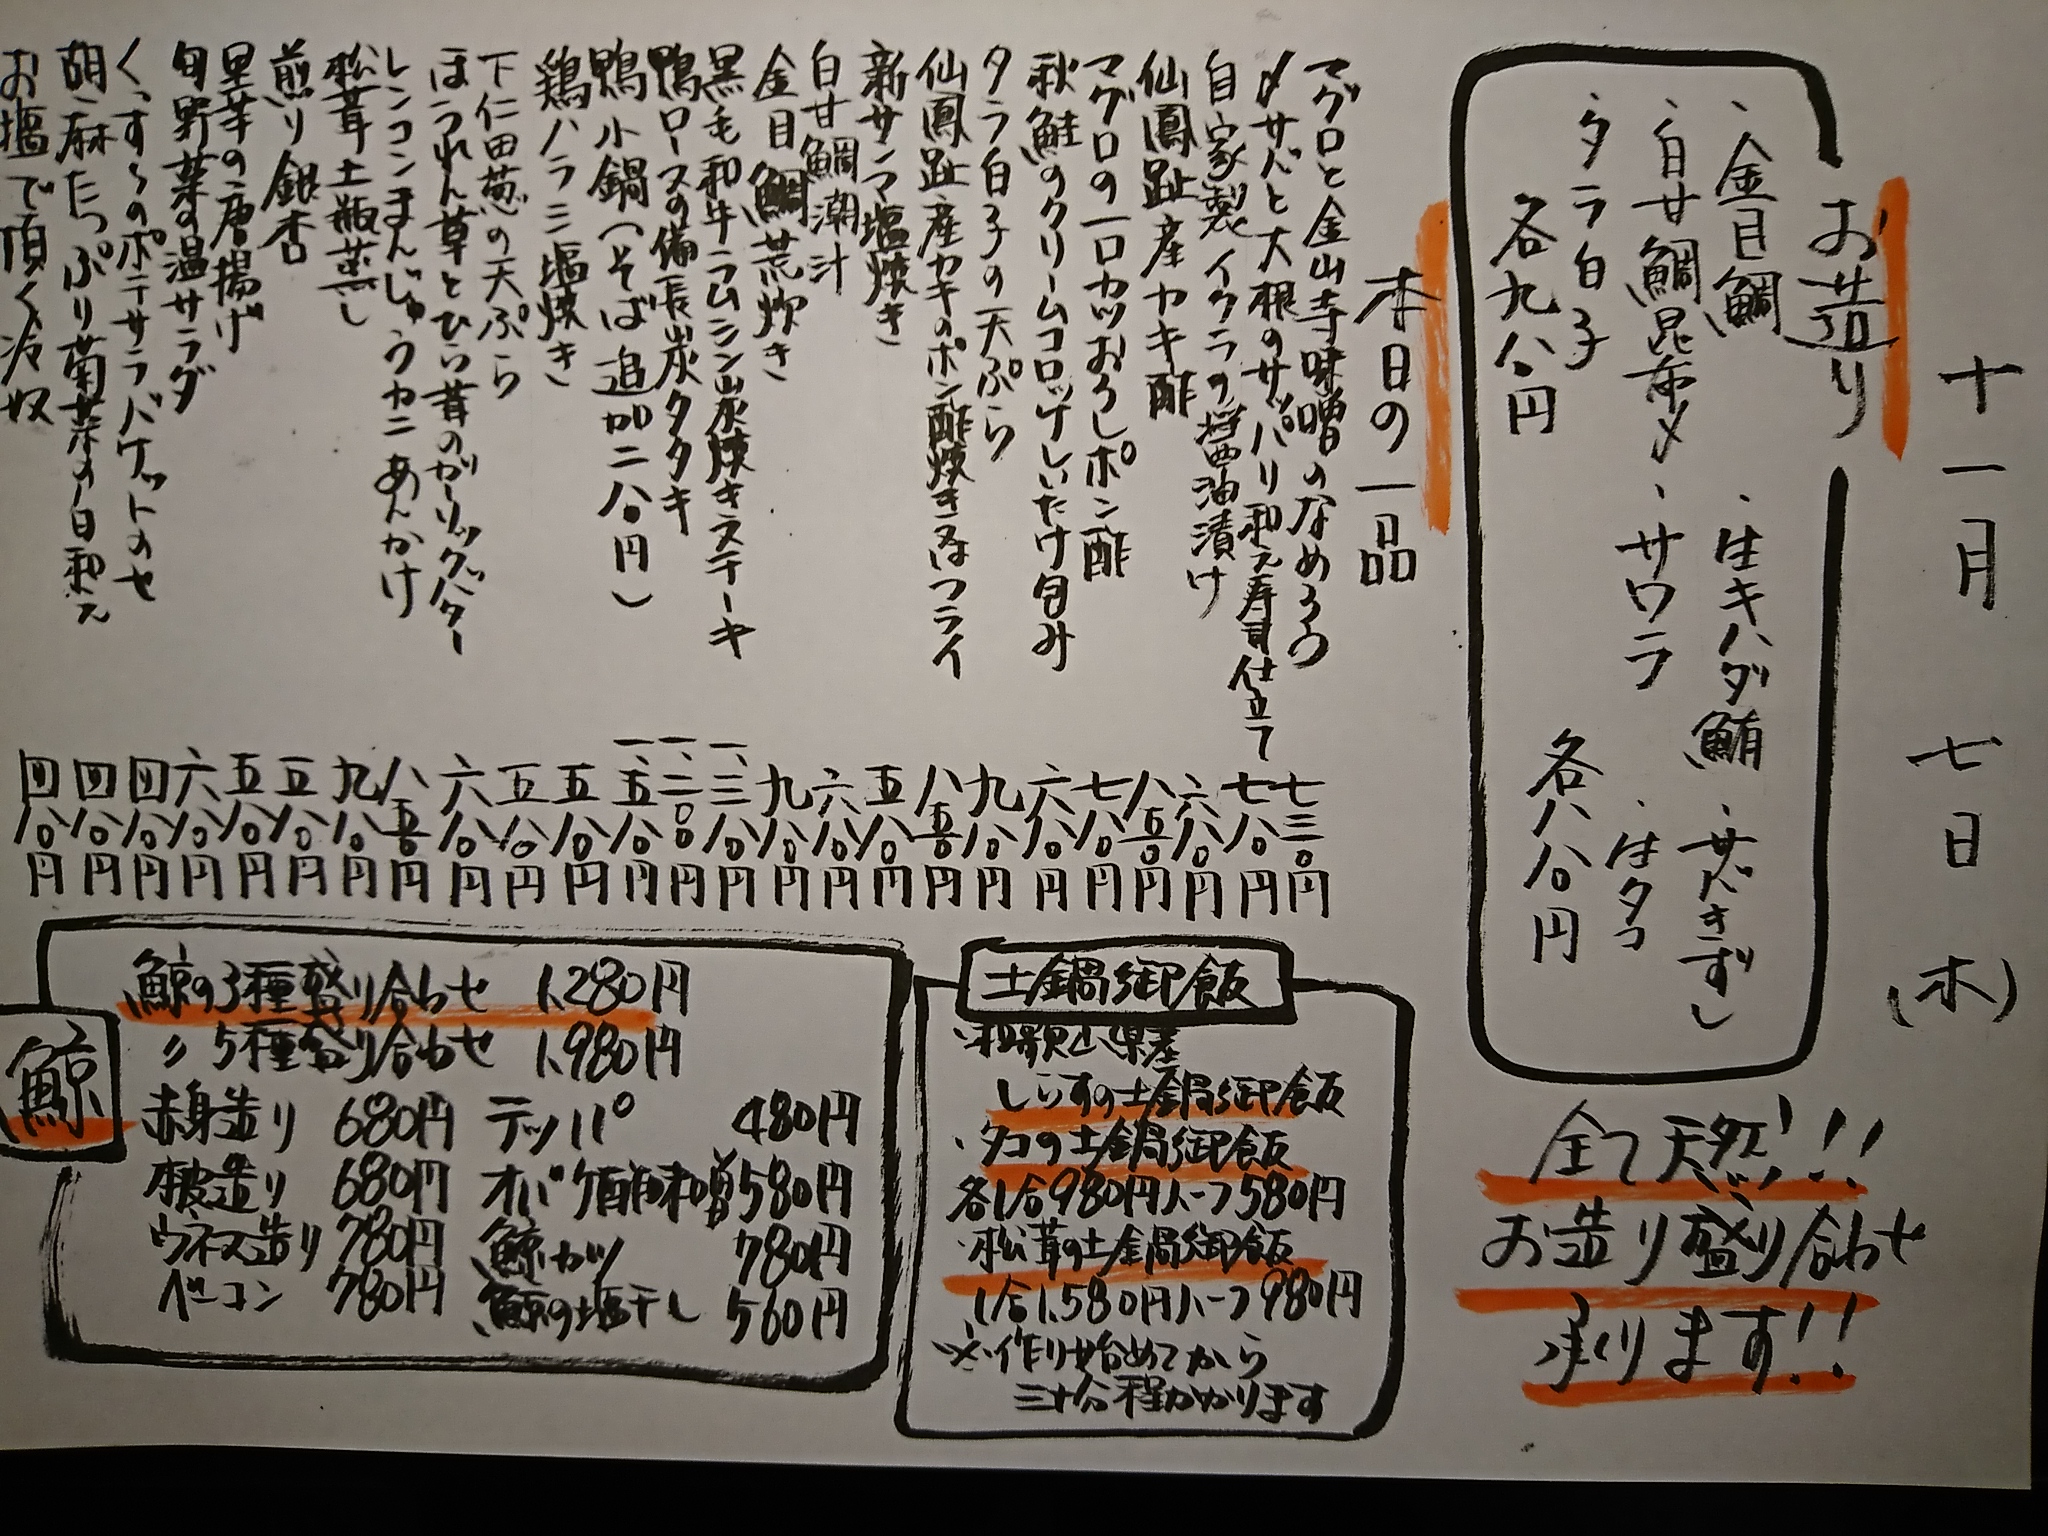 十一月 七日 (木)
お造り
・金目鯛 ・生キハダ鮪 ・サバきずし
・白甘鯛昆布〆 ・サワラ ・生タコ
・タラ白子
各九八〇円 各八八〇円
本日の一品
マグロと金山寺味噌のなめろう 七三〇円
〆サバと大根のサッパリ和え寿司仕立て 七八〇円
自家製イクラの醤油漬け 六八〇円
仙鳳趾産カキ酢 八五〇円
マグロの一口カツおろしポン酢 七八〇円
秋鮭のクリームコロッケしいたけ包み 六八〇円
タラ白子の天ぷら 九八〇円
仙鳳趾産カキのポン酢焼き又はフライ 八五〇円
新サンマ塩焼き 五八〇円
白甘鯛潮汁 六八〇円
金目鯛荒炊き 九八〇円
黒毛和牛ラムシン炭焼きステーキ 一、三八〇円
鴨ロースの備長炭タタキ 一、二〇〇円
鴨小鍋(そば追加二八〇円) 一、五八〇円
鶏ハラミ塩焼き 五八〇円
下仁田葱の天ぷら 五八〇円
ほうれん草とひら茸のガーリックバター 六八〇円
レンコンまんじゅうカニあんかけ 八五〇円
松茸土瓶蒸し 九八〇円
煎り銀杏 五八〇円
里芋の唐揚げ 五八〇円
旬野菜の温サラダ 六八〇円
くっす〜のポテサラバケットのせ 四八〇円
胡麻たっぷり菊菜の白和え 四八〇円
お塩で頂く冷奴 四八〇円
全て天然!!!
お造り盛り合わせ
承ります!!
土鍋御飯
・和歌山県産
しらすの土鍋御飯
・タコの土鍋御飯
各1合980円ハーフ580円
・松茸の土鍋御飯
1合1,580円ハーフ980円
※作り始めてから
三十分程かかります
鯨
鯨の3種盛り合わせ 1,280円
〃5種盛り合わせ 1,980円
赤身造り 680円 テッパ 480円
本皮造り 680円 オバケ酢味噌 580円
ウネス造り 780円 鯨カツ 780円
ベーコン 780円 鯨の塩干し 560円